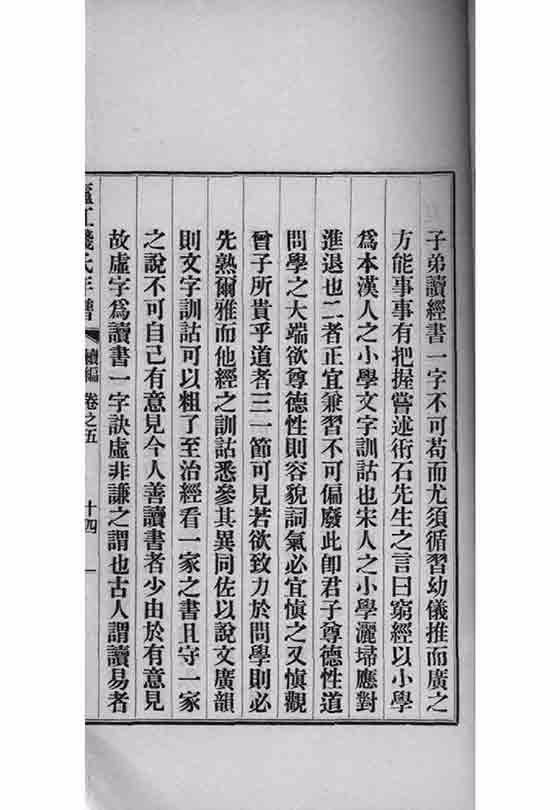 子弟讀經書一字不可苟而尤須循習幼儀推而廣之
方能事事有把握嘗述術石先生之言曰窮經以小學
爲本漢人之小學文字訓詁也宋人之小學灑埽應對
進退也二者正宜兼習不可偏廢此卽君子尊德性道
問學之大端欲尊德性則容貌詞氣必宜愼之又愼觀
曾子所貴乎道者三一節可見若欲致力於問學則必
先熟爾雅而他經之訓詁悉參其異同佐以說文廣韻
則文字訓詁可以粗了至治經看一家之書且守一家
之說不可自己有意見今人善讀書者少由於有意見
故虛字爲讀書一字訣虛非謙之謂也古人謂讀易者
廬江錢氏年譜 續編 卷之五 十四